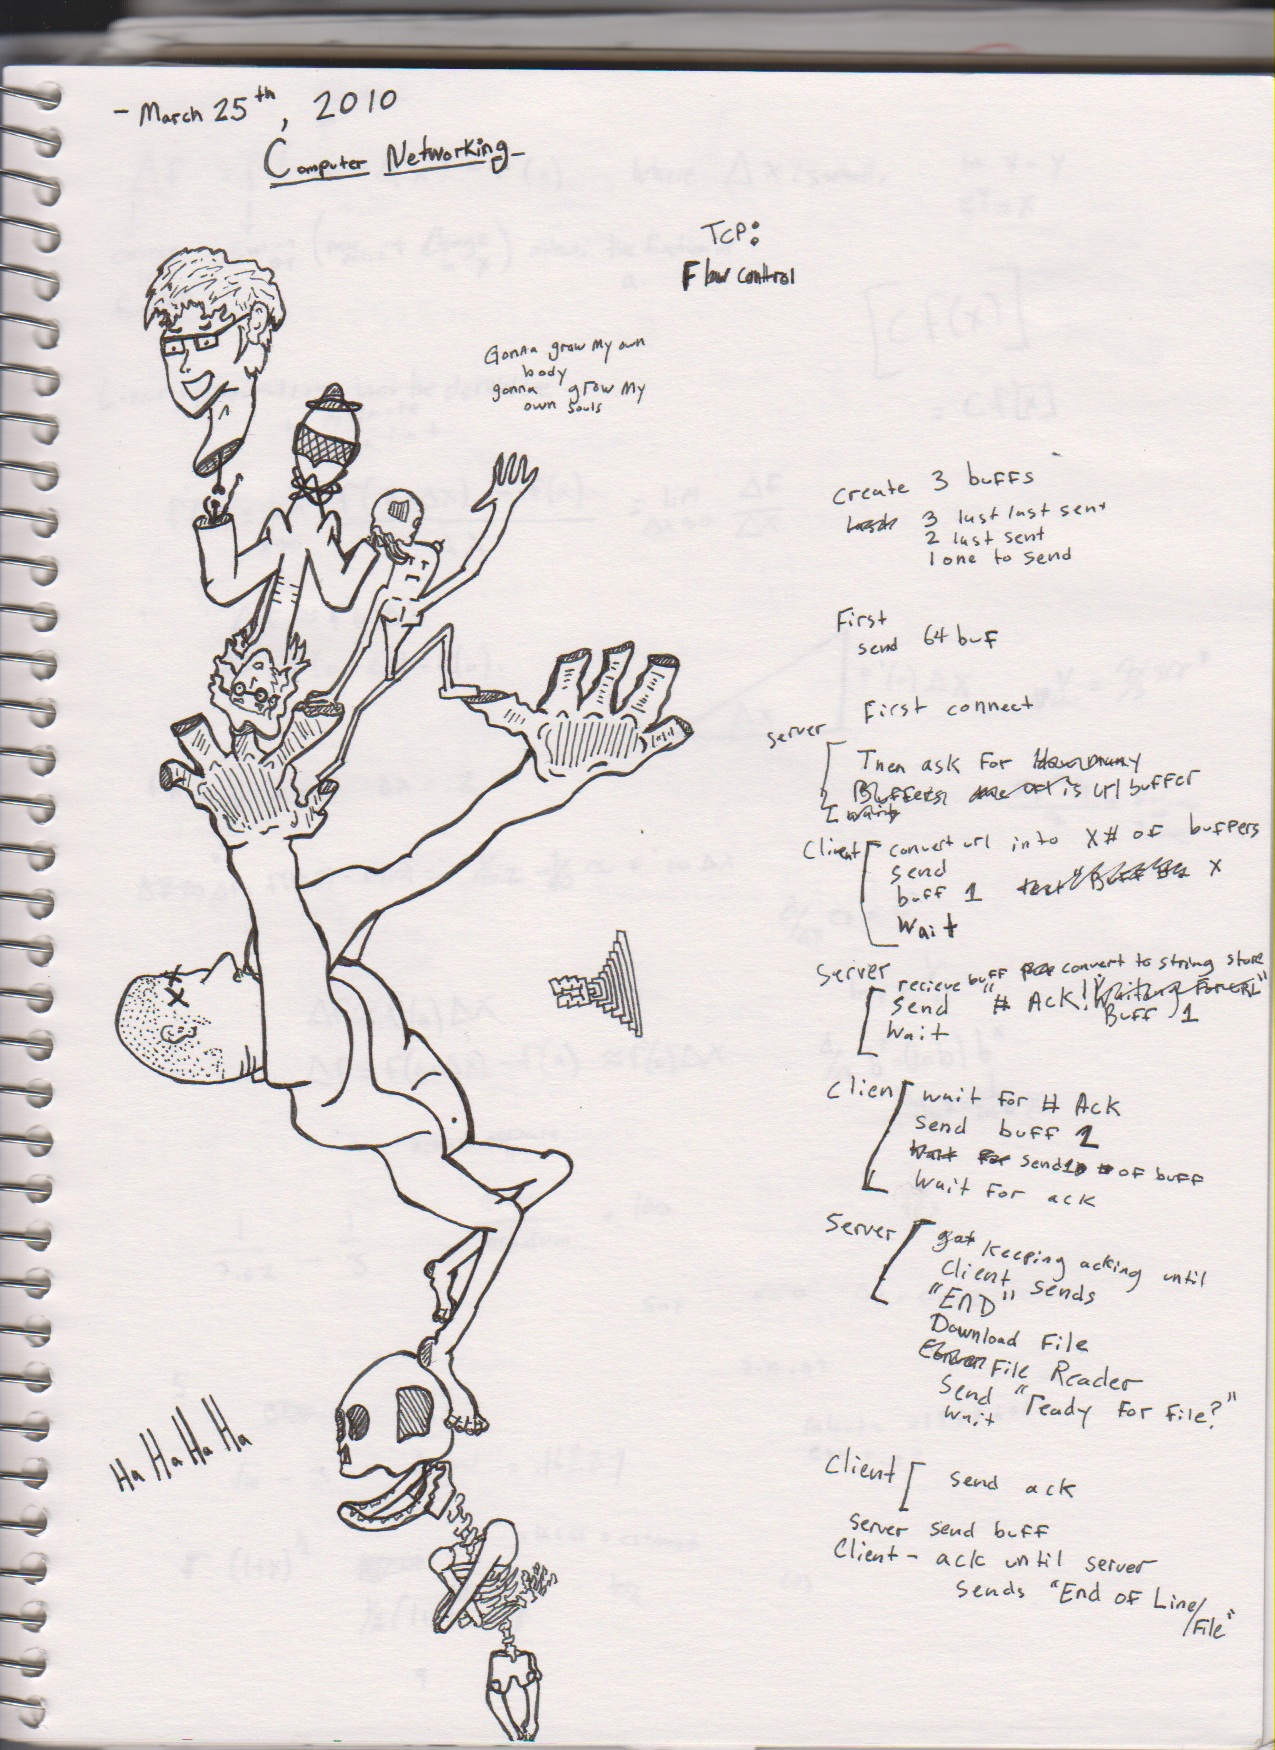 - March 25th, 2010
Computer Networking
TCP:
Flow control
Gonna grow my own
body
gonna grow my
own souls
create 3 buffs
3 last last sent
2 last sent
1 one to send
First
send 64 buf
First connect
server
Then ask for
Buffers is url buffer
wait
Client convert url into X# of buffers
send
buff 1 X
Wait
Server recieve buff convert to string store
send "# Ack! Waiting For URL"
Buff 1
Wait
Client wait for # Ack
send buff 2
send # of buff
wait for ack
Server keeping acking until
client sends
"END"
Download File
File Reader
Send "ready for file?"
wait
Client send ack
server send buff
Client - ack until server
sends "End of Line/
File"
Ha Ha Ha Ha